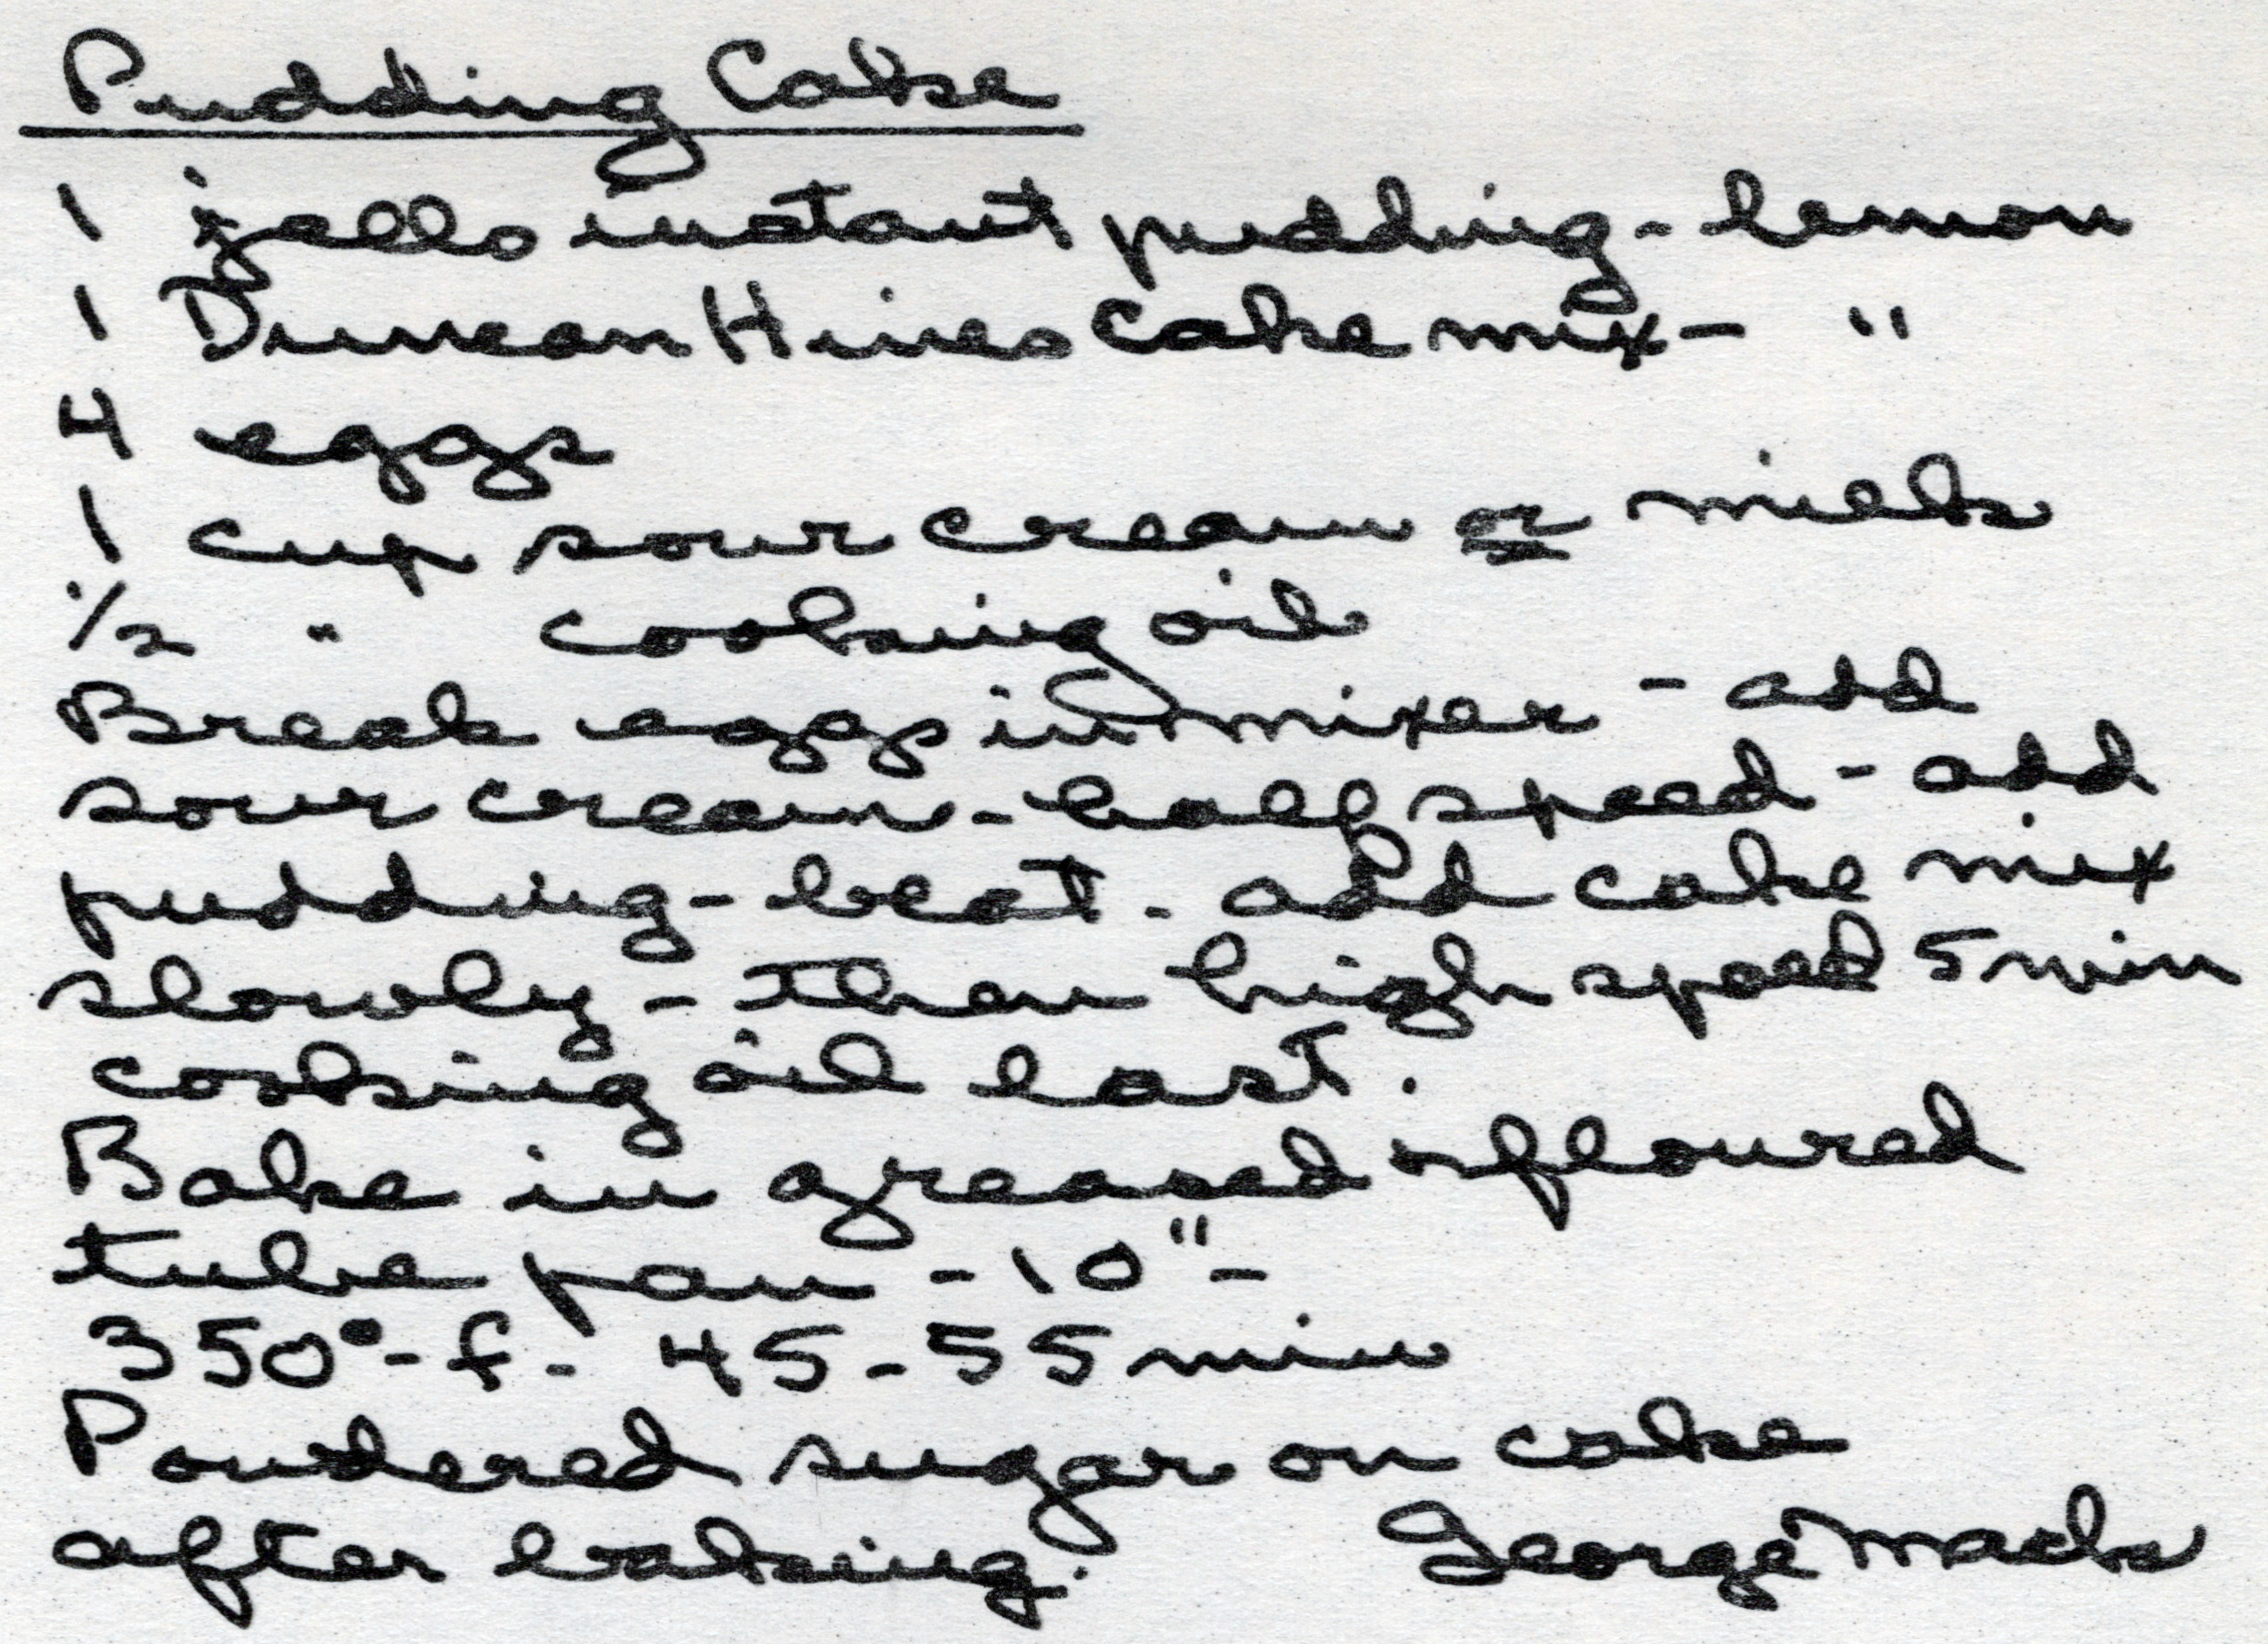 Pudding Cake
1 jello instant pudding - lemon
1 Duncan Hines Cake mix - "
4 eggs
1 cup sour cream or milk
1/2 " cooking oil
Break eggs in mixer - add
sour cream - half speed - add
pudding - beat - add cake mix
slowly - then high speed 5 min
cooking oil last.
Bake in greased & floured
tube pan - 10" -
350° - f - 45 - 55 min
Powdered sugar on cake
after baking. George Mack